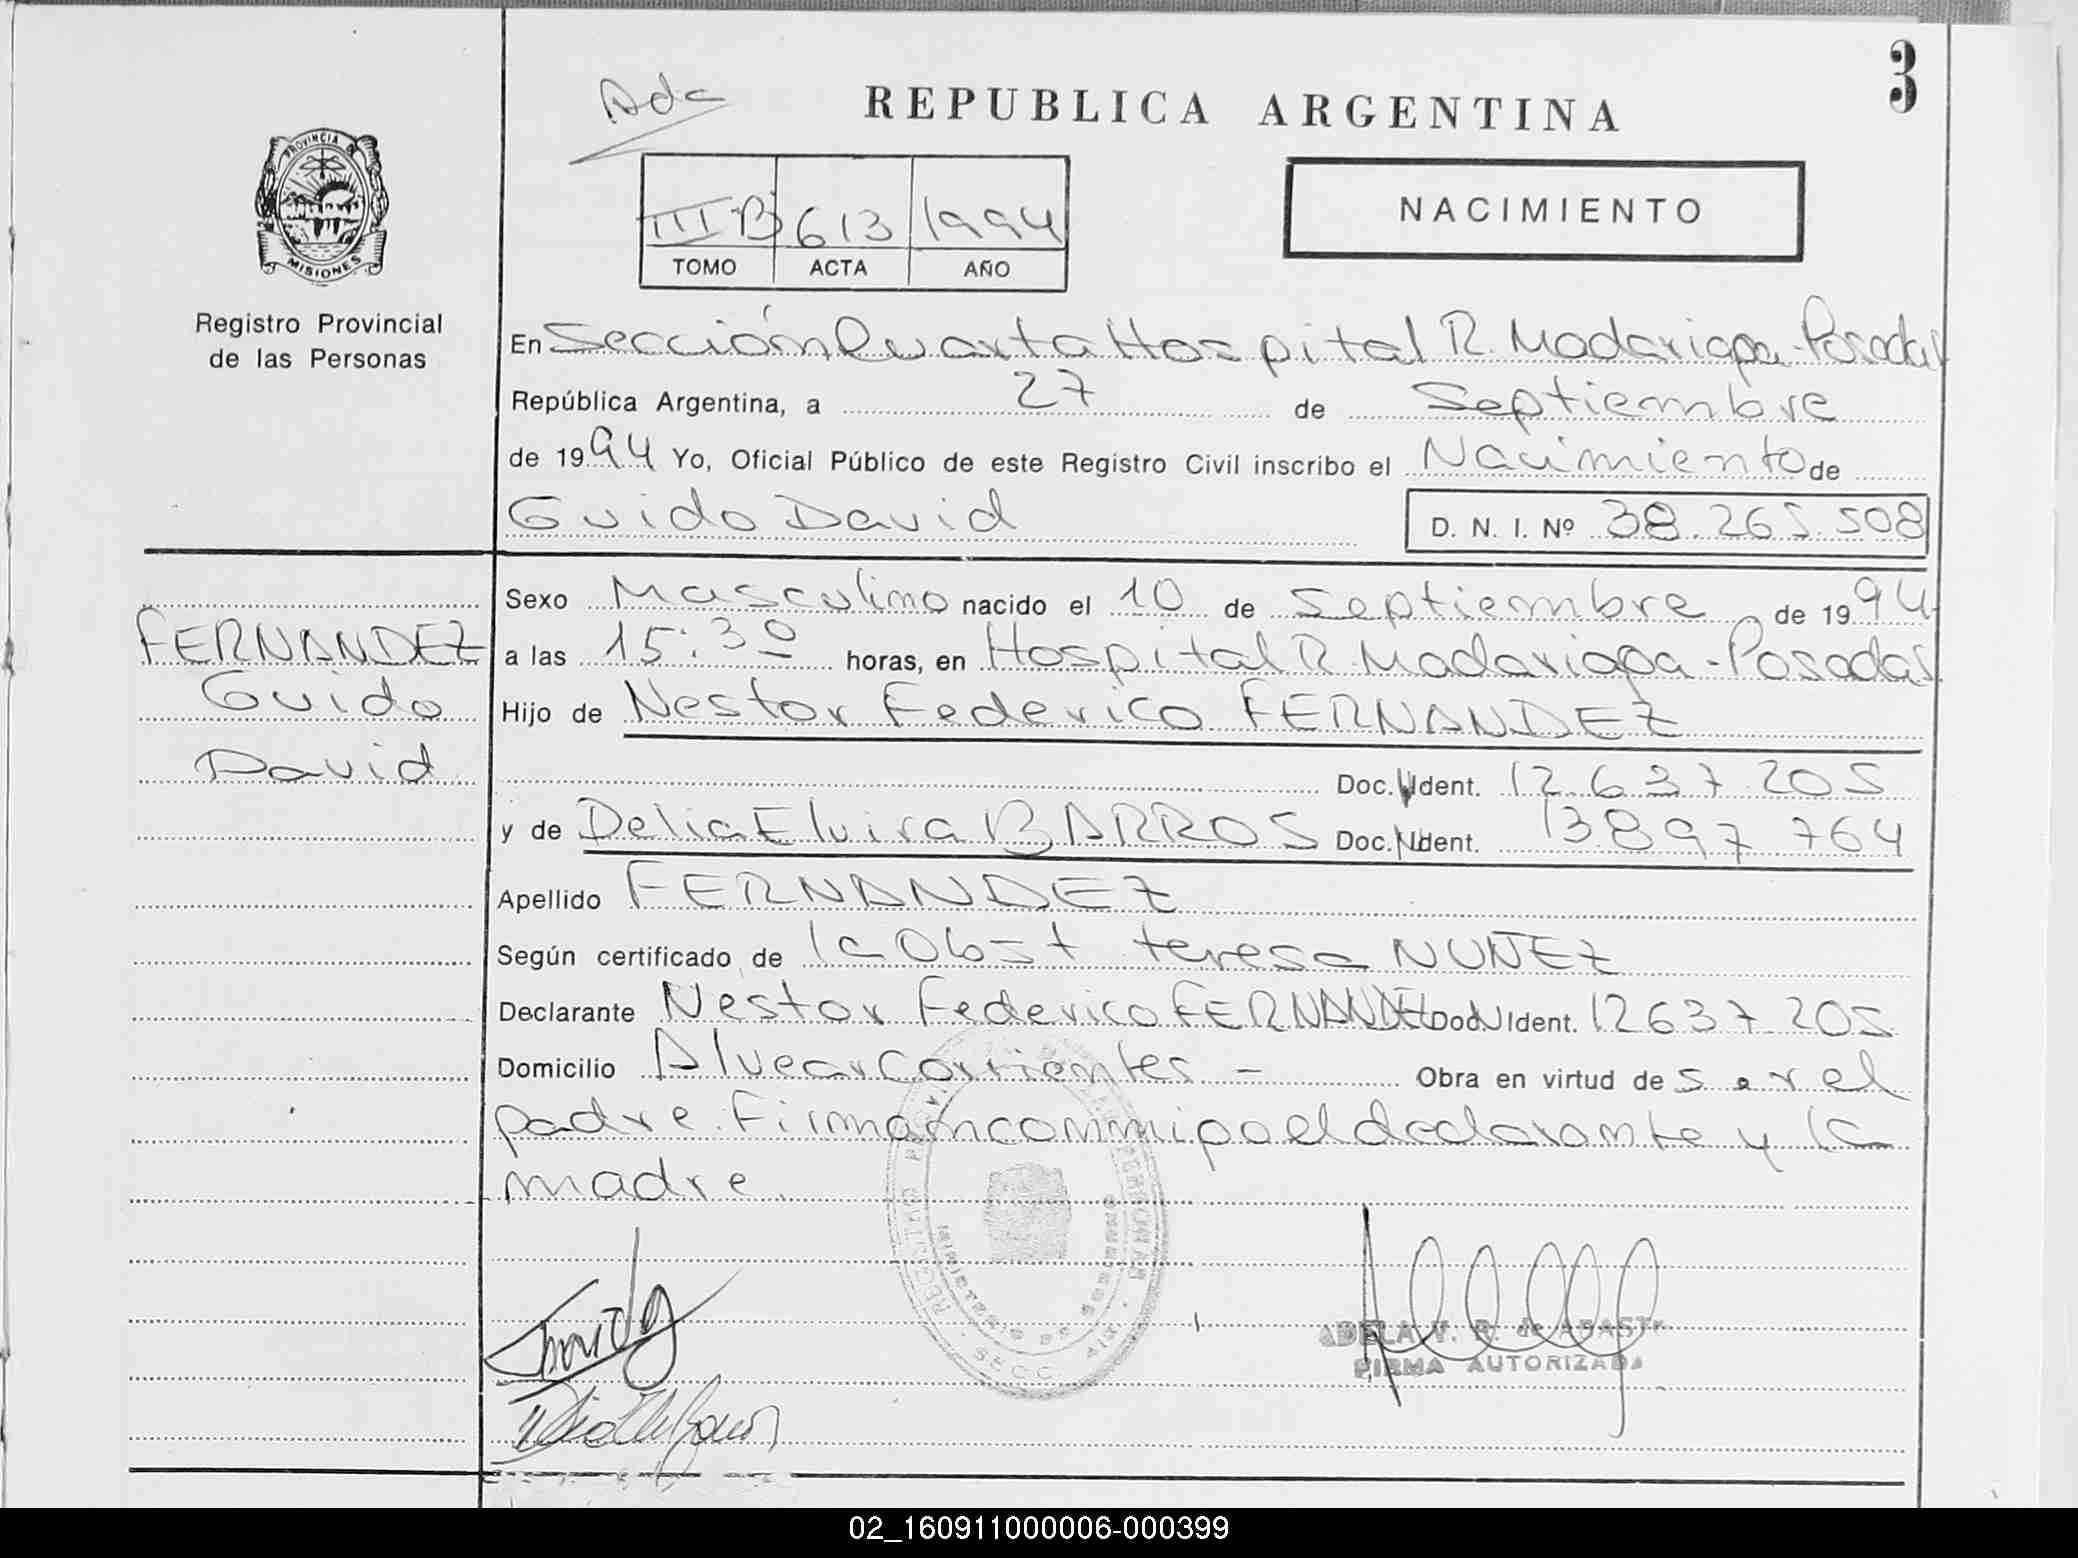 3
Ada
REPUBLICA ARGENTINA
PROVINCIA DE
MISIONES
III B 613 1994
TOMO ACTA AÑO
NACIMIENTO
Registro Provincial
de las Personas
En Sección Cuarta Hospital R. Madariaga - Posadas
República Argentina, a 27 de Septiembre
de 1994 Yo, Oficial Público de este Registro Civil inscribo el Nacimiento de
Guido David D. N. I. Nº 38.265.508
FERNANDEZ
Guido
David
Sexo Masculino nacido el 10 de Septiembre de 1994
a las 15:30 horas, en Hospital R. Madariaga - Posadas
Hijo de Nestor Federico FERNANDEZ
Doc. Ident. 12.637.205
y de Delia Elvira BARROS Doc. N Ident. 13897764
Apellido FERNANDEZ
Según certificado de la Obst teresa NUÑEZ
Declarante Nestor Federico FERNANDEZ Doc N Ident. 12637205
Domicilio Alvear Corrientes - Obra en virtud de ser el
padre. Firman conmigo el declarante y la
madre.
FIRMA AUTORIZADA
02_160911000006-000399